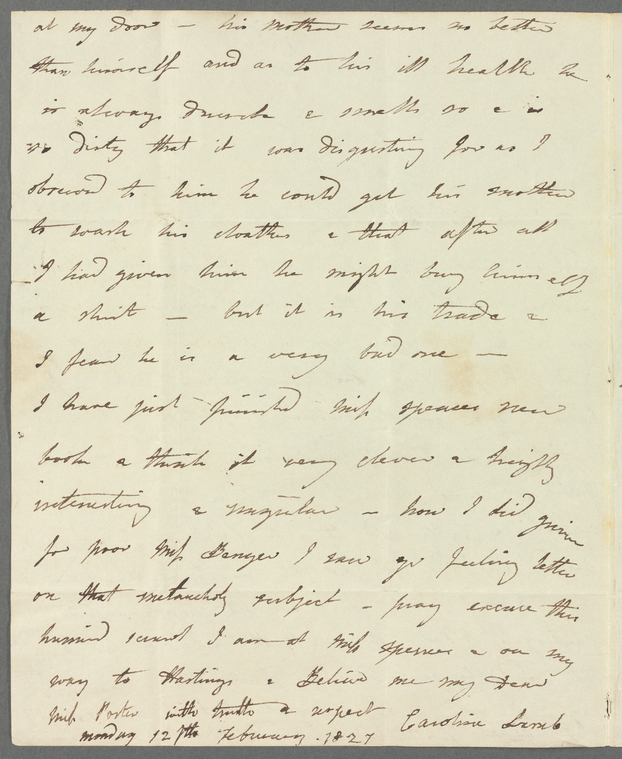 at my door – his mother seems no better
than himself and as to his ill health he
is always drunk & smells so & is
so dirty that it was disgusting for as I
observed to him he could get his mother
to wash his cloathes & that after all
I had given him he might buy himself
a shirt – but it is his trade &
I fear he is a very bad one —
I have just finished Miss Spences new
book & think it very clever & highly
interesting & singular – how I did grieve
for poor Miss Benger I saw yr feeling letter
on that melancholy subject – pray excuse this
hurried scrawl I am at Miss Spences & on my
way to Hastings & Believe me my Dear
Miss Porter with truth & respect Caroline Lamb
monday 12th February. 1827